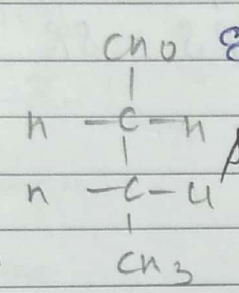 CHO
H - C - H
H - C - H
CH3